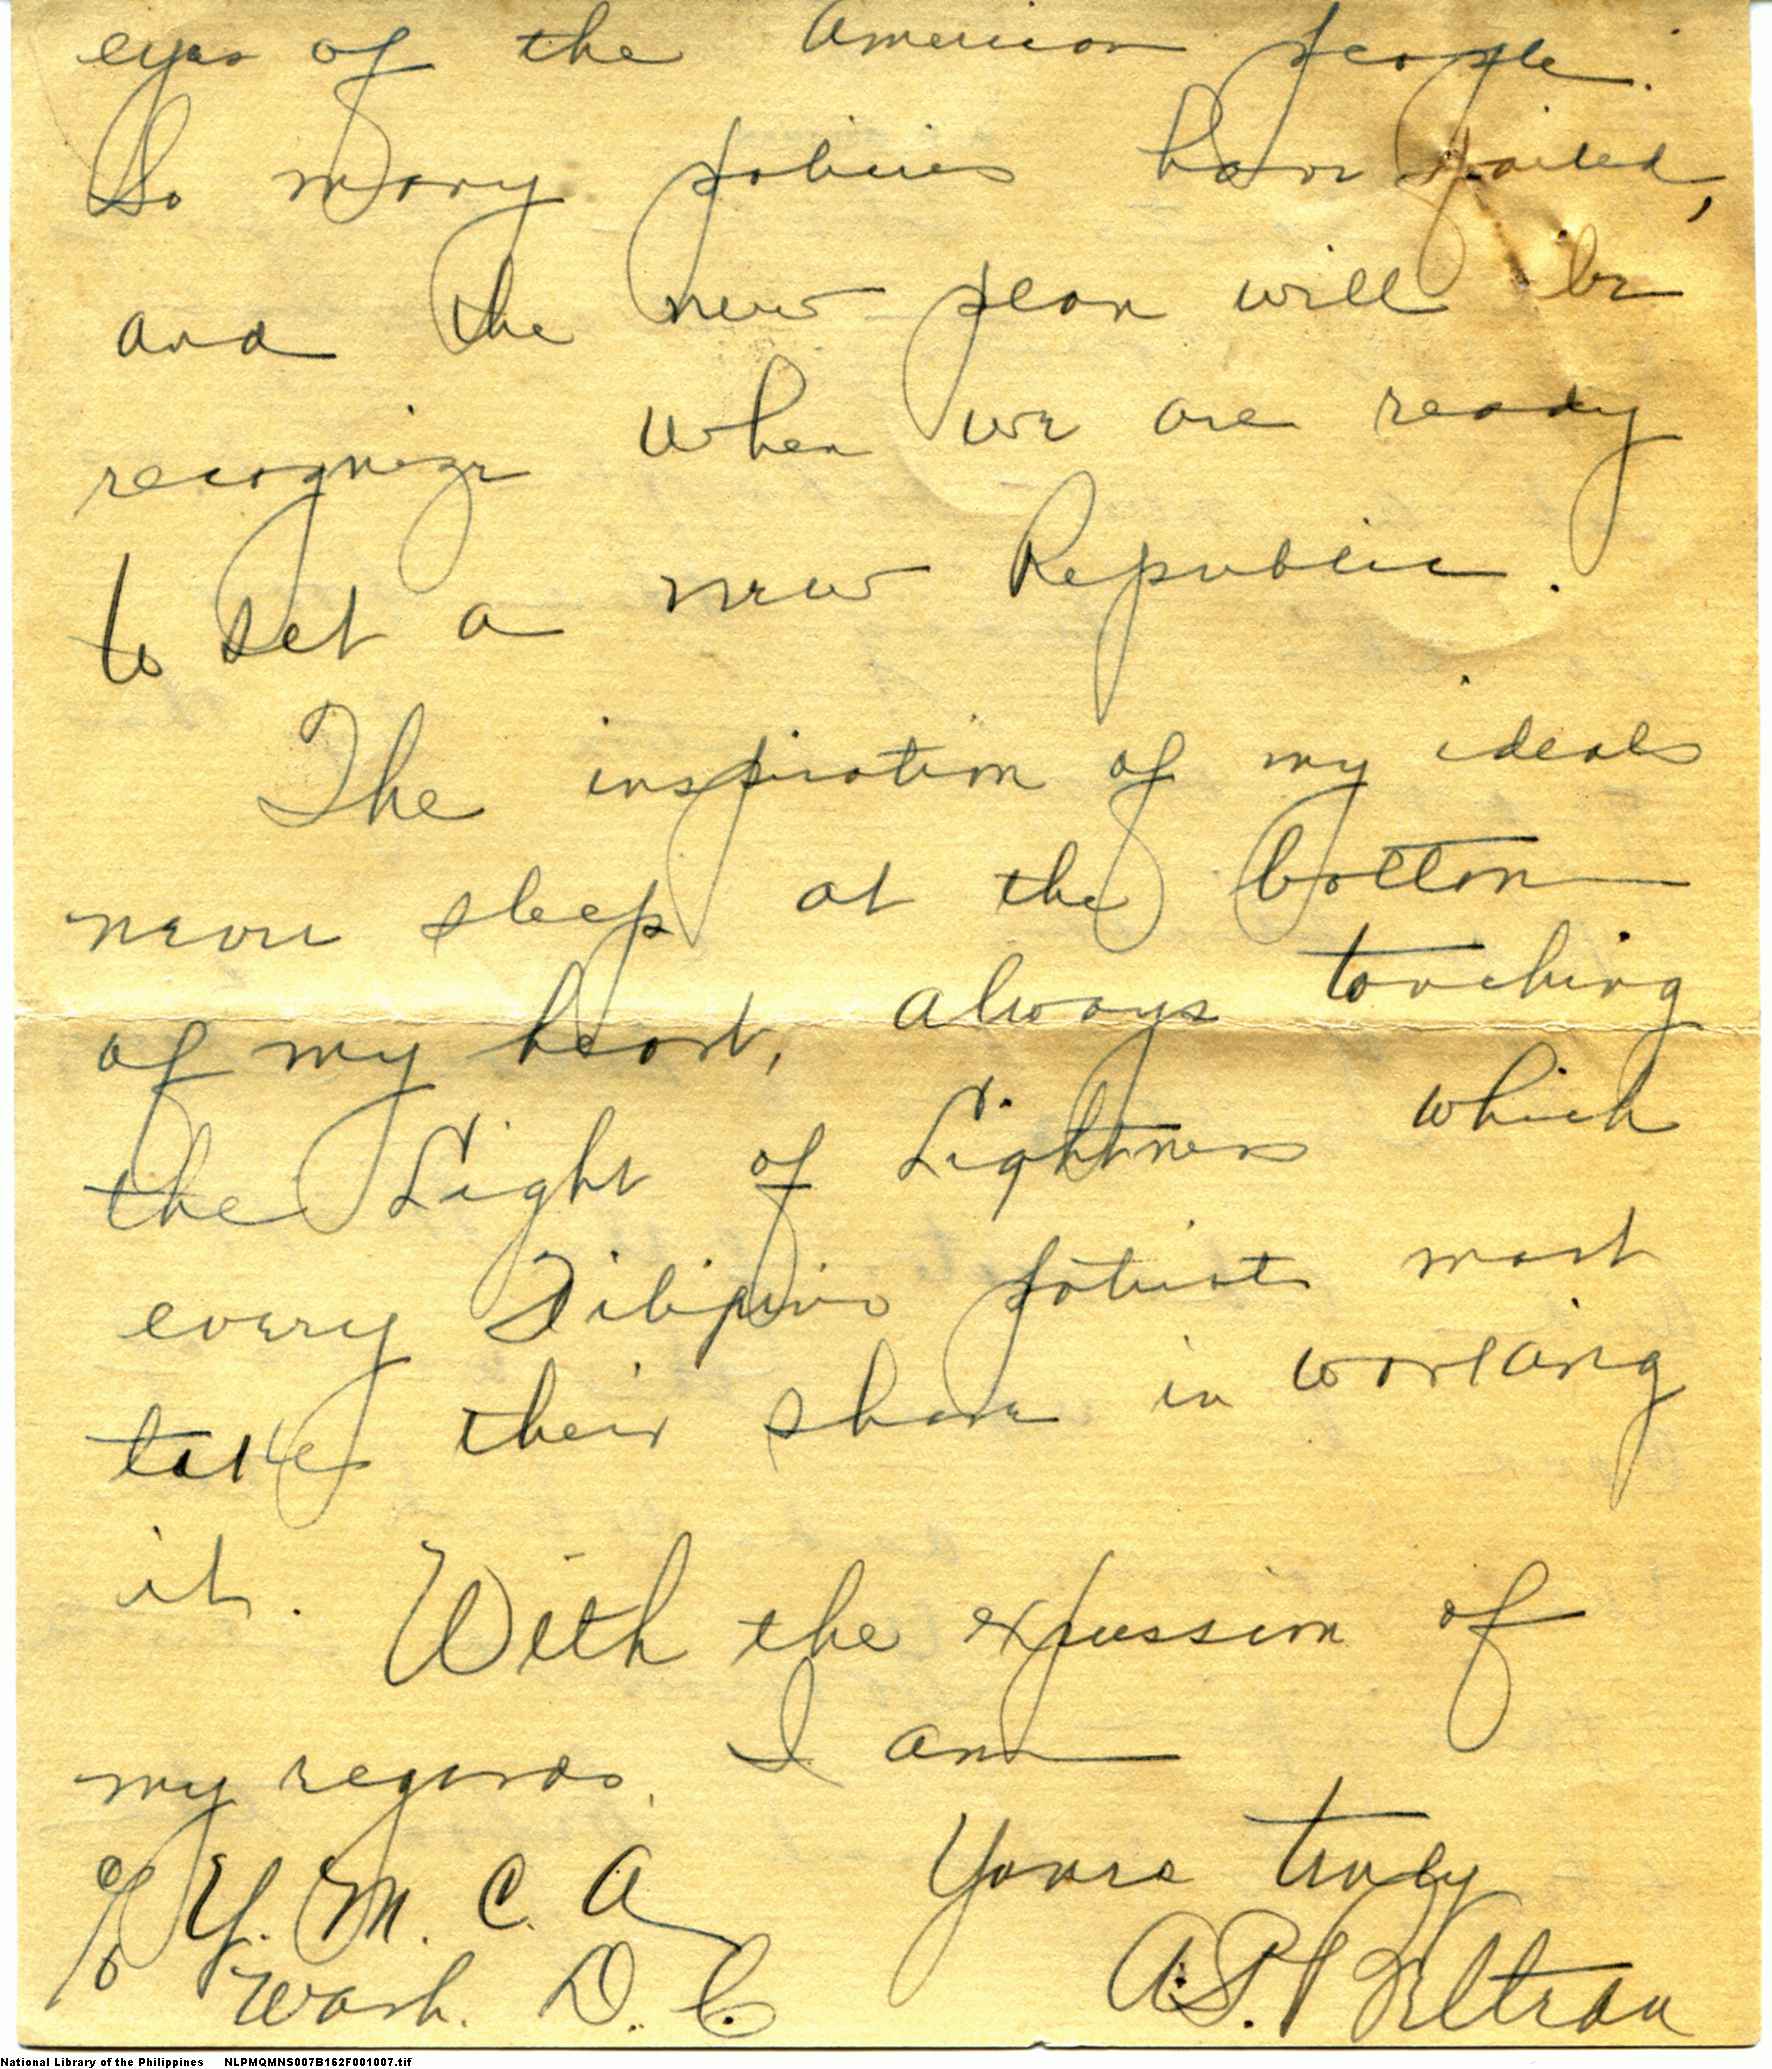 eyes of the American people.
So many policies have failed,
and the new plan will be
recognize when we are ready
to set a new Republic.
The inspiration of my ideals
never sleep at the bottom
of my heart, always touching
the Light of Lightness which
every Filipino patriots must
take their share in working
it. With the expression of
my regards, I am
Yours truly
c/o Y. M. C. A
A.S. Beltran
Wash. D. C.
National Library of the Philippines NLPMQMNS007B162F001007.tif